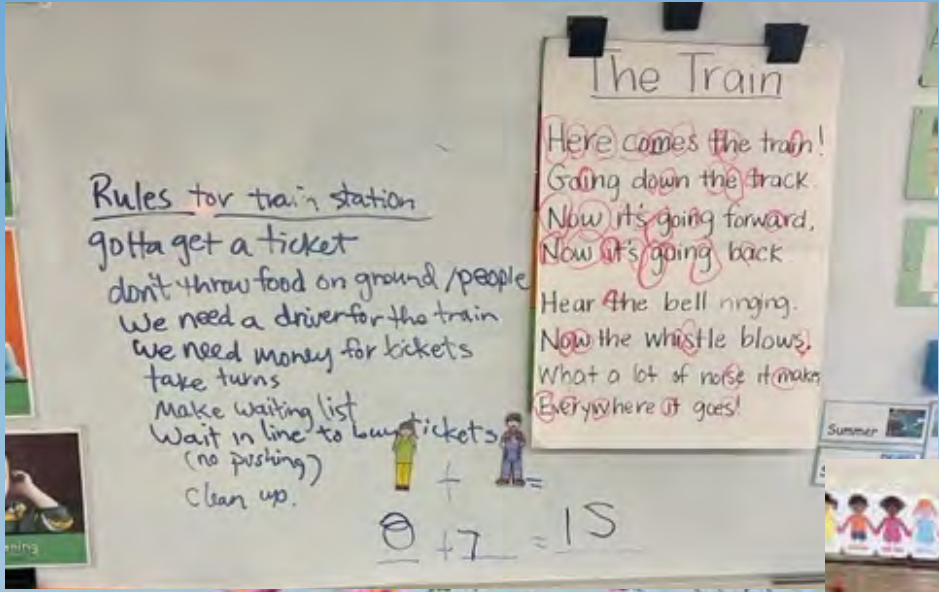 Rules for train station
gotta get a ticket
don't throw food on ground/people
We need a driver for the train
we need money for tickets
take turns
Make waiting list
Wait in line to buy tickets
(no pushing)
Clean up.
+ =
8 + 7 = 15
The Train
Here comes the train!
Going down the track.
Now it's going forward,
Now it's going back
Hear the bell ringing.
Now the whistle blows.
What a lot of noise it makes
Everywhere it goes!
Summer